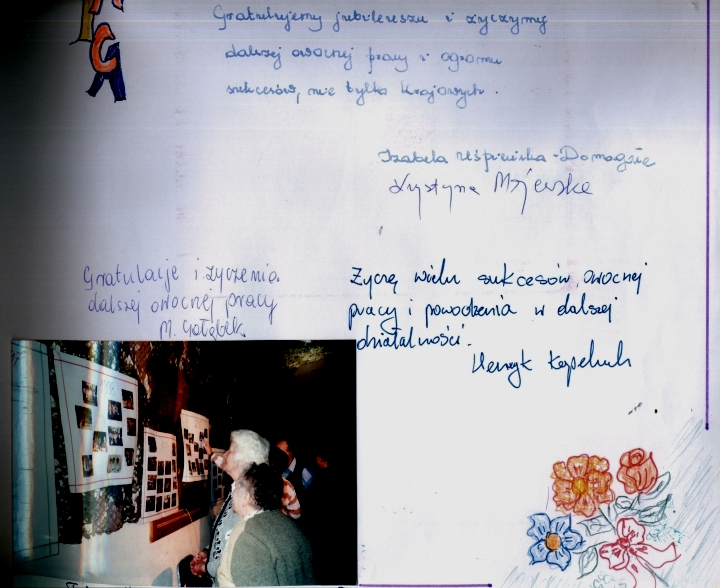 Gratulujemy jubileuszu i życzymy
dalszej owocnej pracy i ogromu
sukcesów, nie tylko krajowych.
Izabela
Krystyna
Gratulacje i życzenia
dalszej owocnej pracy
M. Gołąbek
Życzę wielu sukcesów, owocnej
pracy i powodzenia w dalszej
działalności.
Henryk